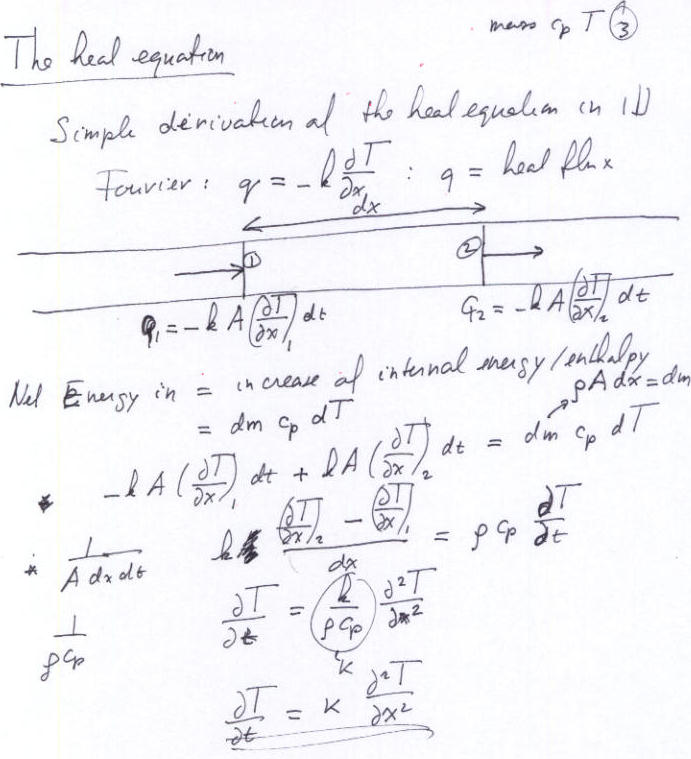 mass cp T ③
The heat equation
Simple derivation of the heat equation in 1D
Fourier: q = -k ∂T/∂x : q = heat flux
dx
① ②
Q₁ = -k A (∂T/∂x)₁ dt Q₂ = -k A (∂T/∂x)₂ dt
Net Energy in = increase of internal energy/enthalpy
ρ A dx = dm
= dm cp dT
* -k A (∂T/∂x)₁ dt + k A (∂T/∂x)₂ dt = dm cp dT
* 1/(A dx dt) k ((∂T/∂x)₂ - (∂T/∂x)₁)/dx = ρ cp ∂T/∂t
1/(ρ cp) ∂T/∂t = k/(ρ cp) ∂²T/∂x²
κ
∂T/∂t = κ ∂²T/∂x²